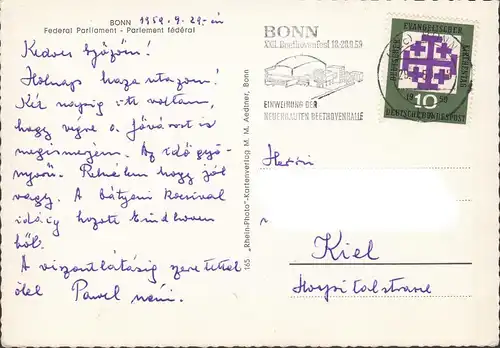 BONN 1959. 9. 29-én
Federal Parliament - Parlement fédéral
Kedves
Holnap haza utazom!
Két napig itt voltam,
hogy végre a fővárost is
megismerjem. Az idő gyö-
nyörű. Remélem hogy jól
vagy. A bátyám kocsival
idáig hozott Eindhoven
ből.
A viszontlátásig szeretettel
ölel Pawel néni.
165 „Rhein-Photo"-Kartenverlag M. M. Aedtner, Bonn
BONN
XXI. Beethovenfest 18.-28.9.59
EINWEIHUNG DER
NEUERBAUTEN BEETHOVENHALLE
DEUTSCHER EVANGELISCHER KIRCHENTAG
10
DEUTSCHE BUNDESPOST
Kiel